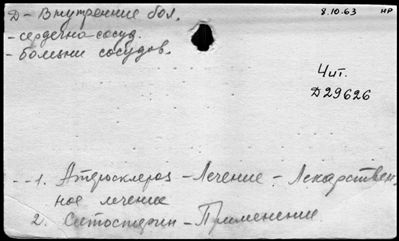 Д - Внутренние бол.
- сердечно-сосуд.
- болезни сосудов.
8.10.63 НР
Чит.
Д29626
1. Атеросклероз - Лечение - Лекарствен-
ное лечение
2. Ситостерин - Применение